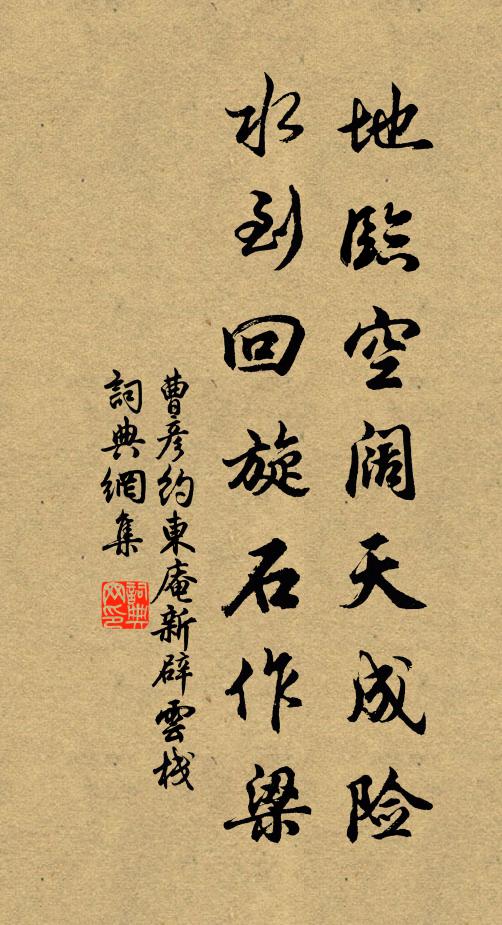 地臨空阔天成险
水到回旋石作梁
曹彦約東庵新辟雲棧
詞典網集
詞典网印